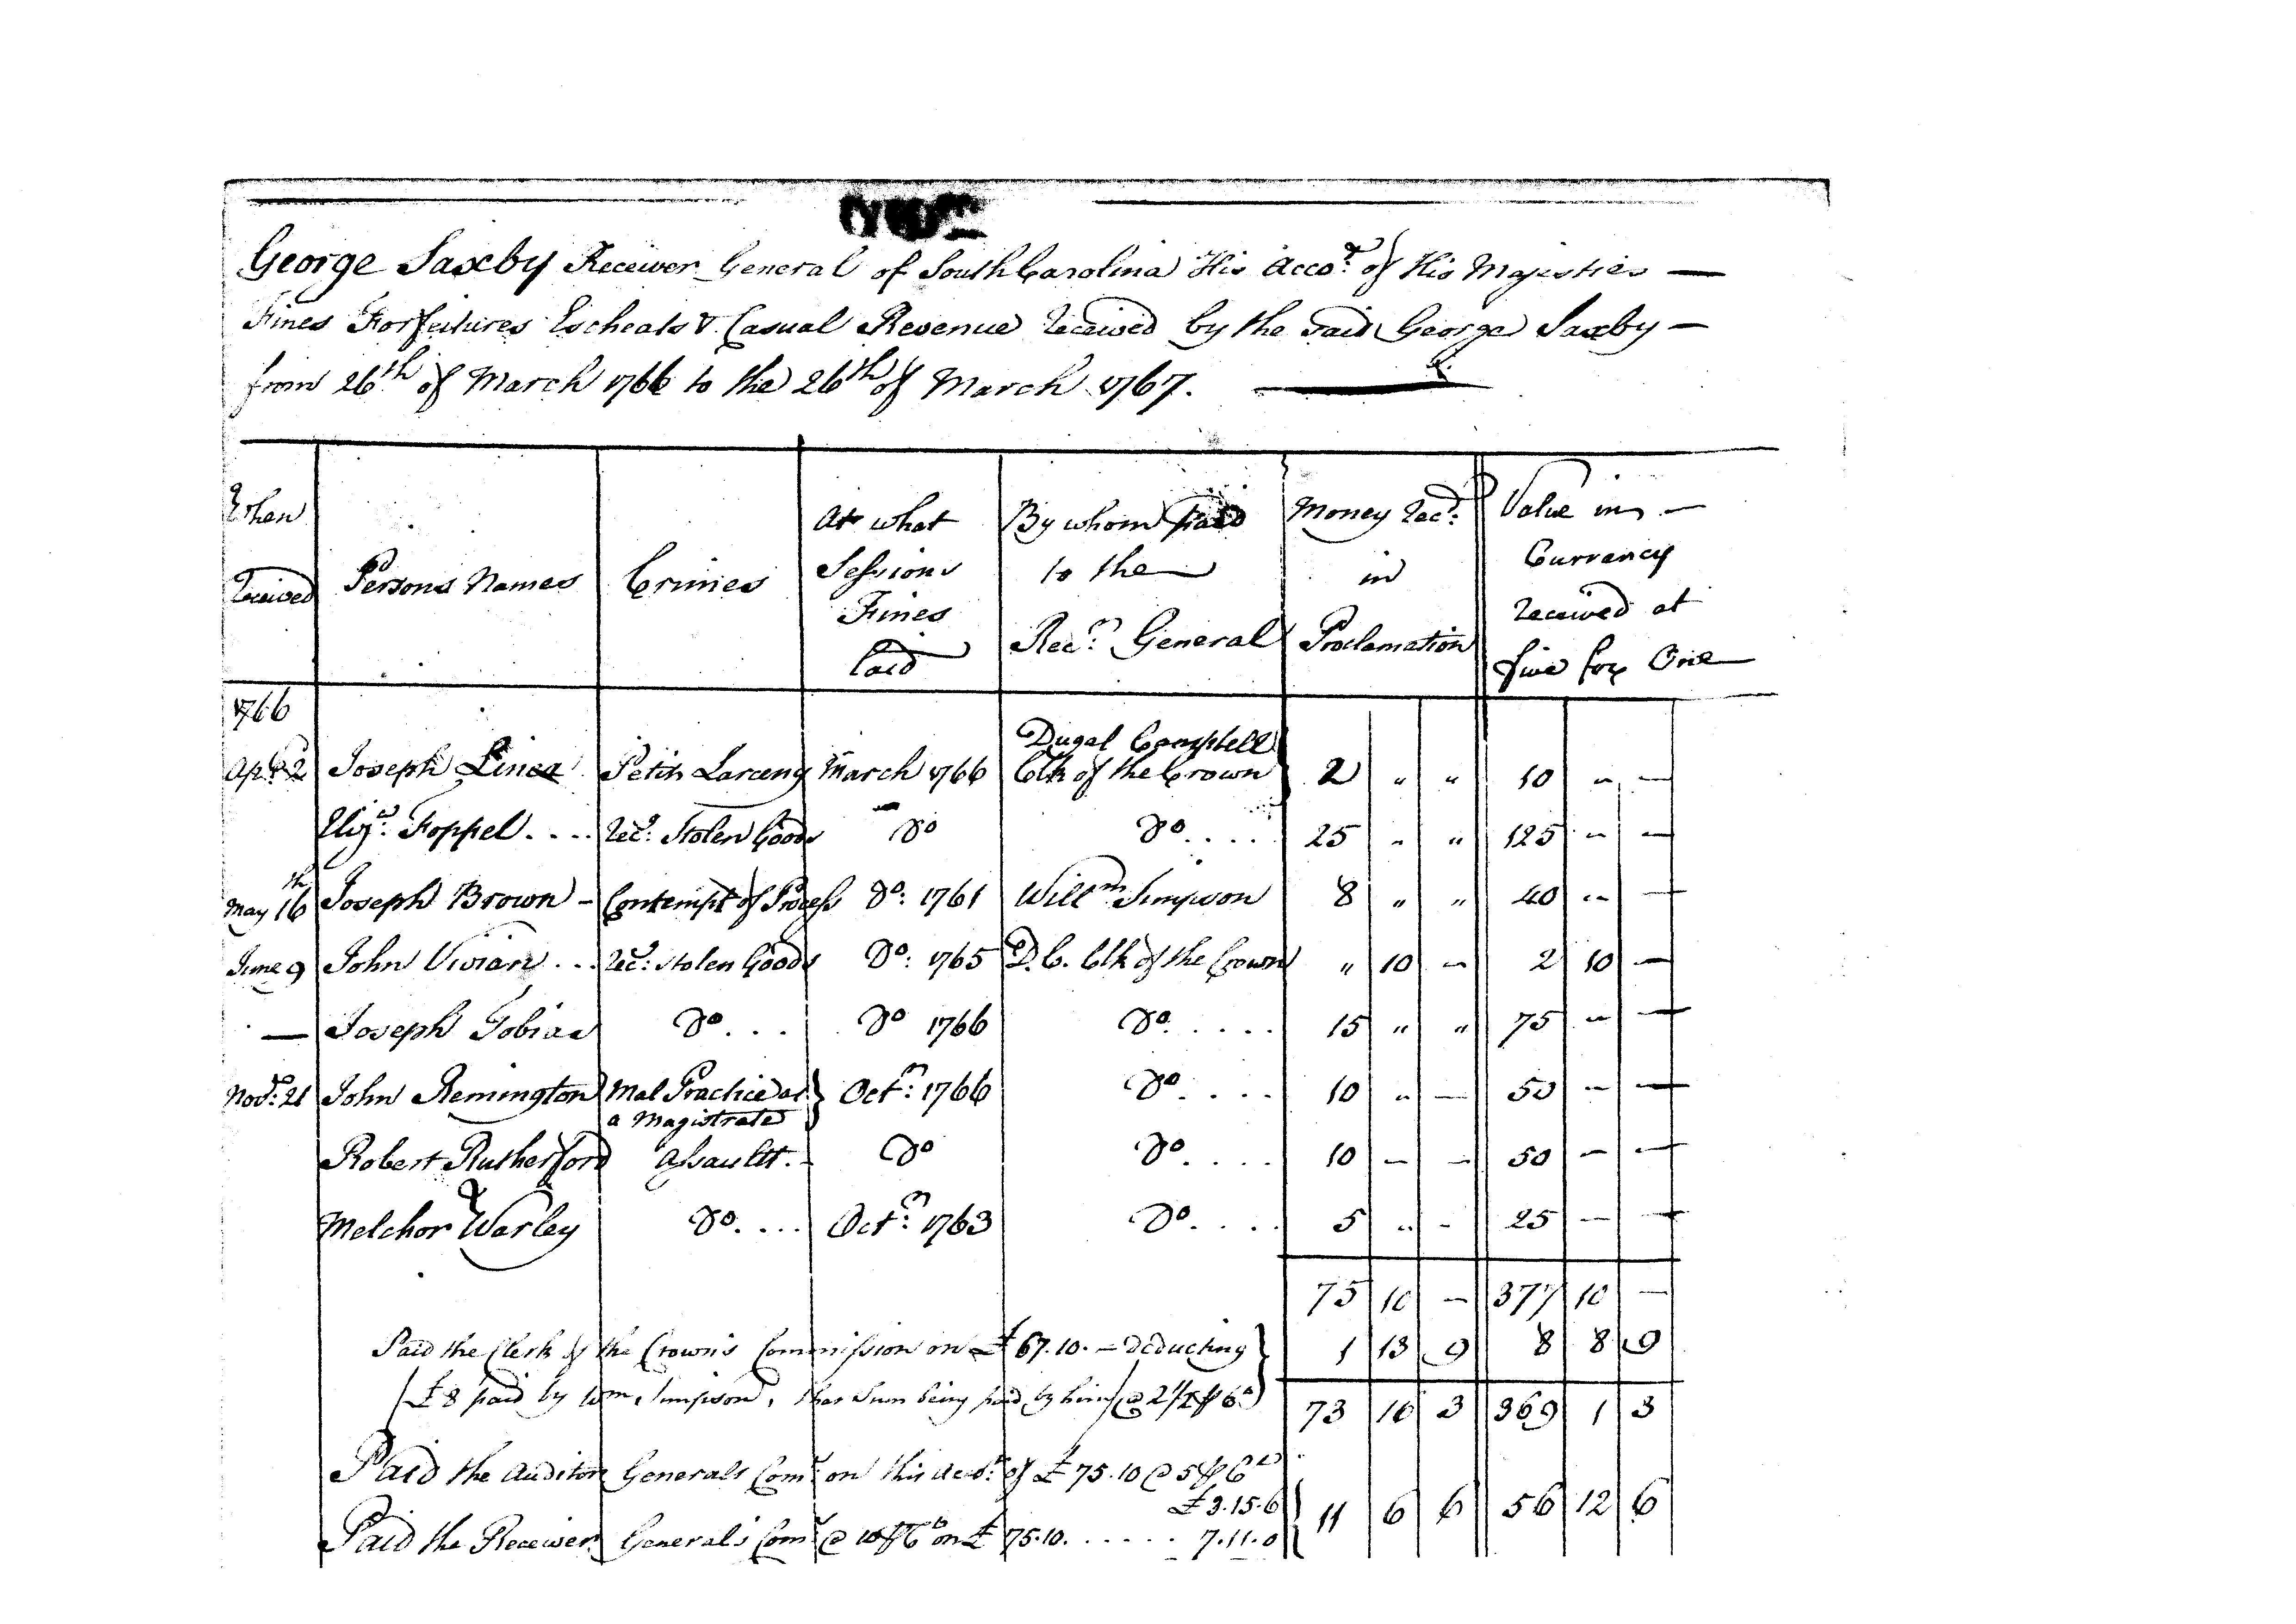 George Saxby Receiver General of South Carolina His Acco.t of His Majesties —
Fines Forfeitures Escheats & Casual Revenue received by the said George Saxby —
from 26th of March 1766 to the 26th of March 1767.
When received | Persons Names | Crimes | At what Sessions Fines laid | By whom paid to the Rec.r General | Money rec.d in Proclamation | Value in — Currency received at five for One
1766
Apr.l 2 Joseph Linea Petit Larceny March 1766 Dugal Campbell Clk of the Crown } 2 " " 10 " —
Eliz.a Foppel .... rec.d Stolen Goods Do Do .... 25 " " 125 " —
May 16th Joseph Brown — Contempt of Process Do: 1761 Will.m Simpson 8 " " 40 " —
June 9 John Vivian ... rec.d stolen Goods Do: 1765 D.C. Clk of the Crown " 10 — 2 10 —
— Joseph Tobias Do ... Do 1766 Do ..... 15 " " 75 " —
Nov.r 21 John Remington Mal Practice as a Magistrate } Oct.r 1766 Do .... 10 " — 50 " —
Robert Rutherford Assault. Do Do .... 10 — — 50 — —
Melchor Warley Do .... Oct.r 1763 Do .... 5 " - 25 — —
75 10 — 377 10 —
Paid the Clerk of the Crown's Commission on £67.10. — deducting } 1 13 9 8 8 9
(£8 paid by Wm. Simpson, that Sum being paid by him) @ 2½ ⅌ C.t
73 16 3 369 1 3
Paid the Auditor Generals Com.n on this Acco.t of £75.10 @ 5 ⅌ C.t
£3.15.6 } 11 6 6 56 12 6
Paid the Receiver General's Com.n @ 10 ⅌ C.t on £75.10. ..... 7.11.0